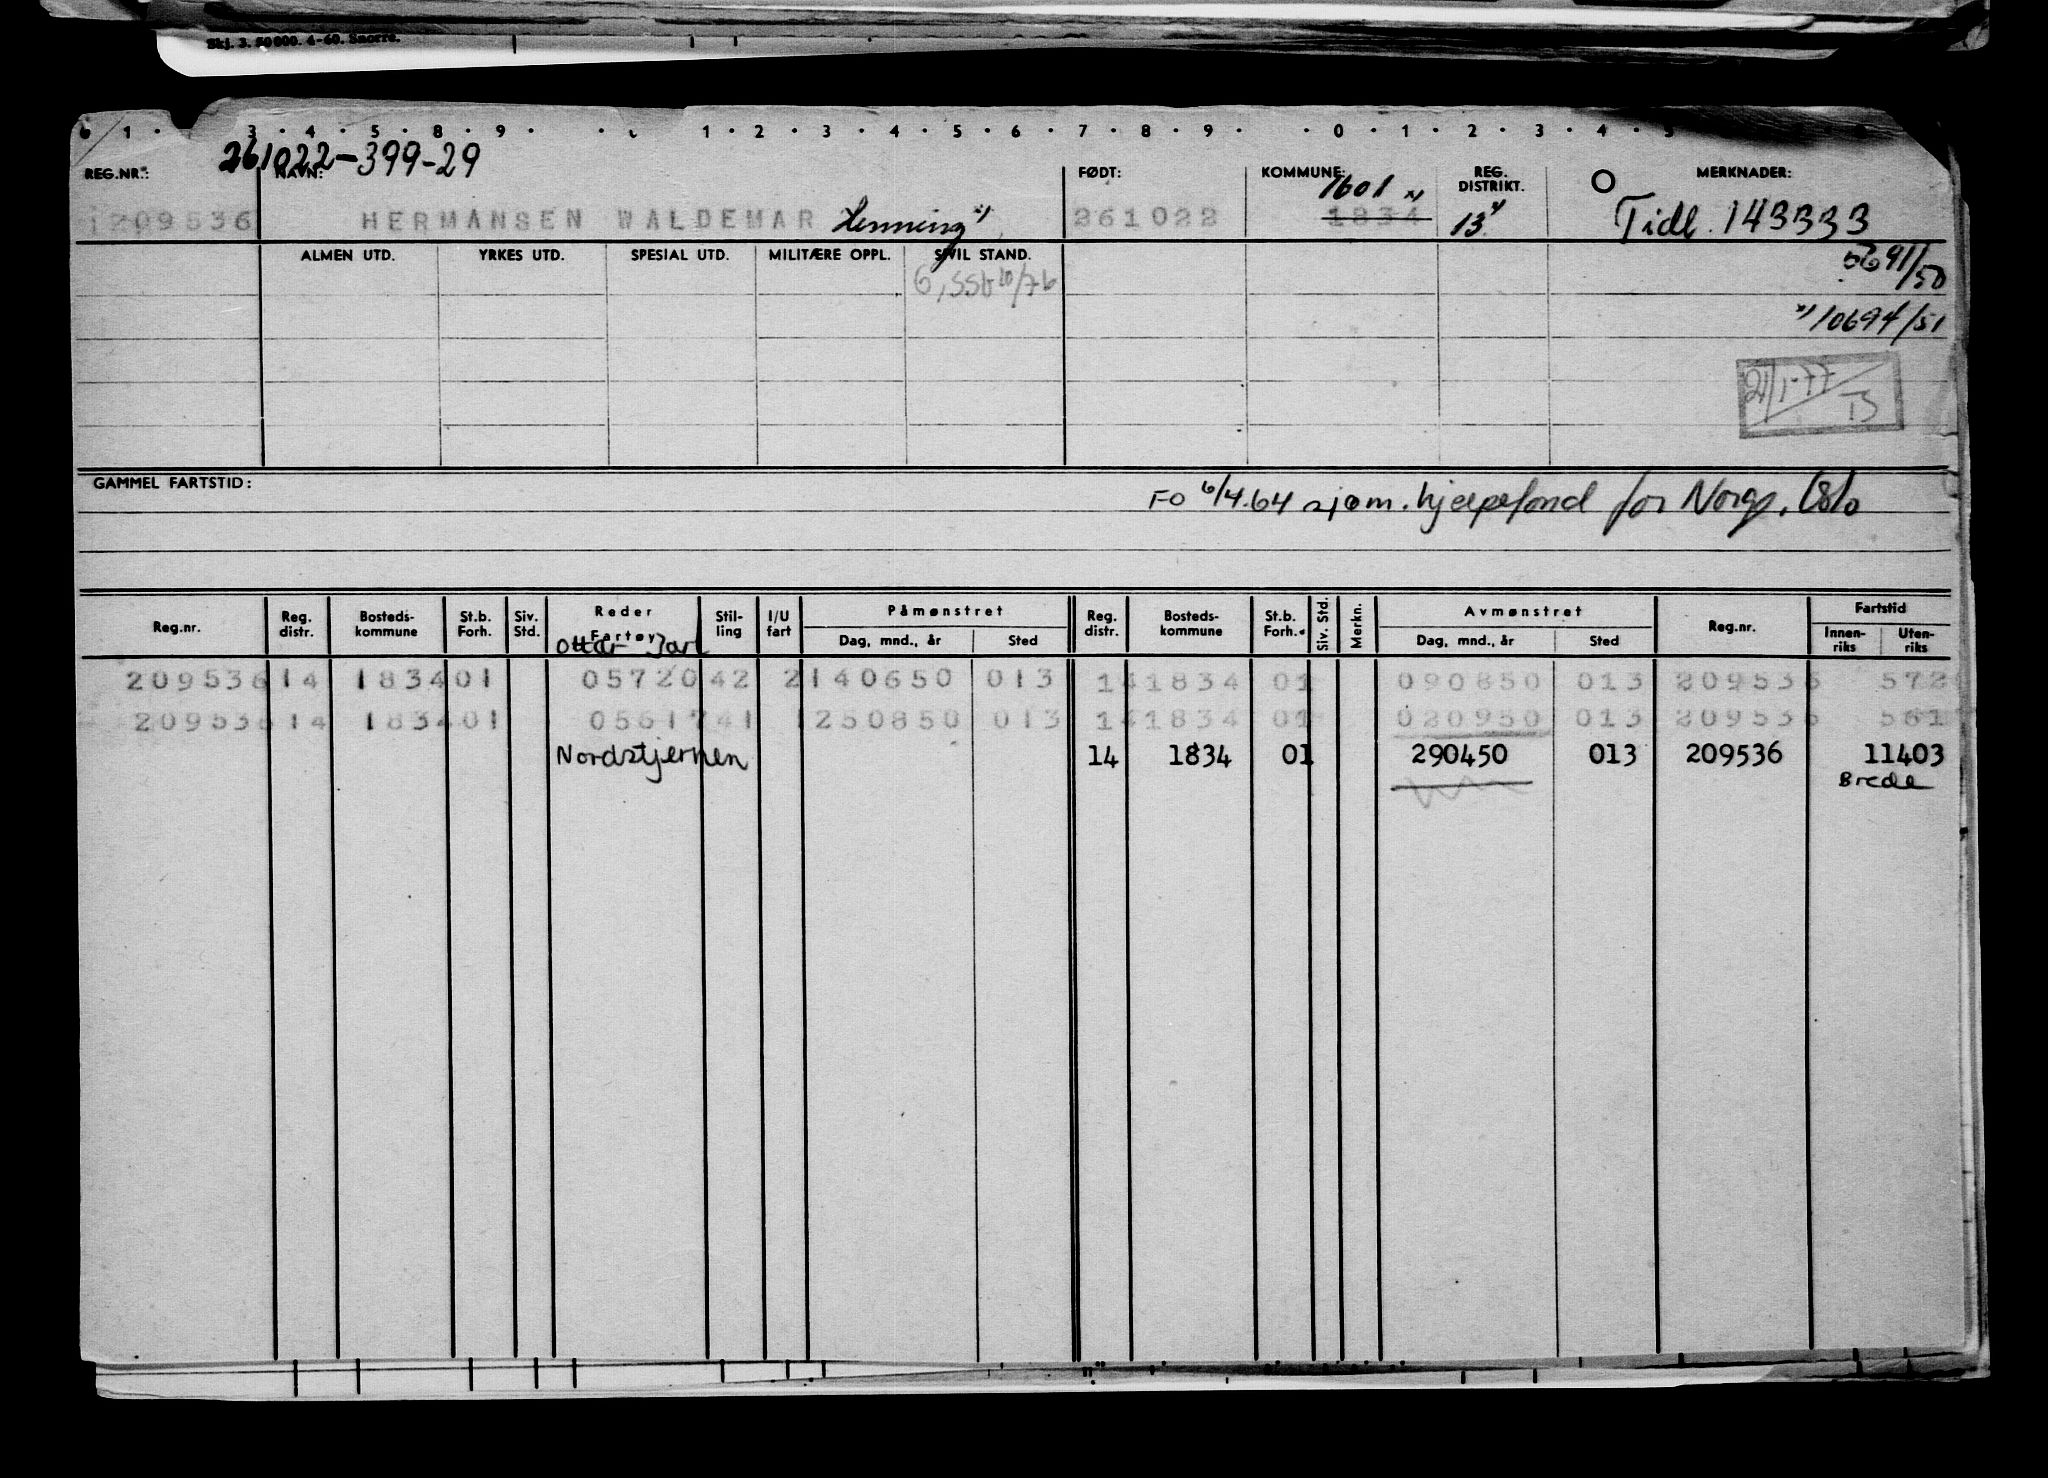 Skj. 3. 50 000. 4-60. Snorre.
1 · 3 · 4 · 5 · 8 · 9 · 1 · 2 · 3 · 4 · 5 · 6 · 7 · 8 · 9 · 0 · 1 · 2 · 3 · 4 · 5
261022-399-29
REG.NR.: NAVN: FØDT: KOMMUNE: REG. DISTRIKT. MERKNADER:
1601 x)
209536 HERMANSEN WALDEMAR Henning x) 261022 1834 13 x) Tidl. 143333
ALMEN UTD. YRKES UTD. SPESIAL UTD. MILITÆRE OPPL. SIVIL STAND. 5691/50
6, SSb 10/76
x) 10694/51
21/1-77
GAMMEL FARTSTID: FO 6/4.64 sjøm. hjelpefond for Norge, Oslo
Reg.nr. Reg. distr. Bosteds-kommune St.b. Forh. Siv. Std. Reder Fartøy Stil-ling I/U fart Påmønstret Dag, mnd., år Sted Reg. distr. Bosteds-kommune St.b. Forh. Siv. Std. Merkn. Avmønstret Dag, mnd., år Sted Reg.nr. Fartstid Innen-riks Uten-riks
Ottar Jarl
209536 14 1834 01 05720 42 2 140650 013 14 1834 01 090850 013 209536 572
209536 14 1834 01 05617 41 1 250850 013 14 1834 01 020950 013 209536 561
Nordstjernen 14 1834 01 290450 013 209536 11403
Brede